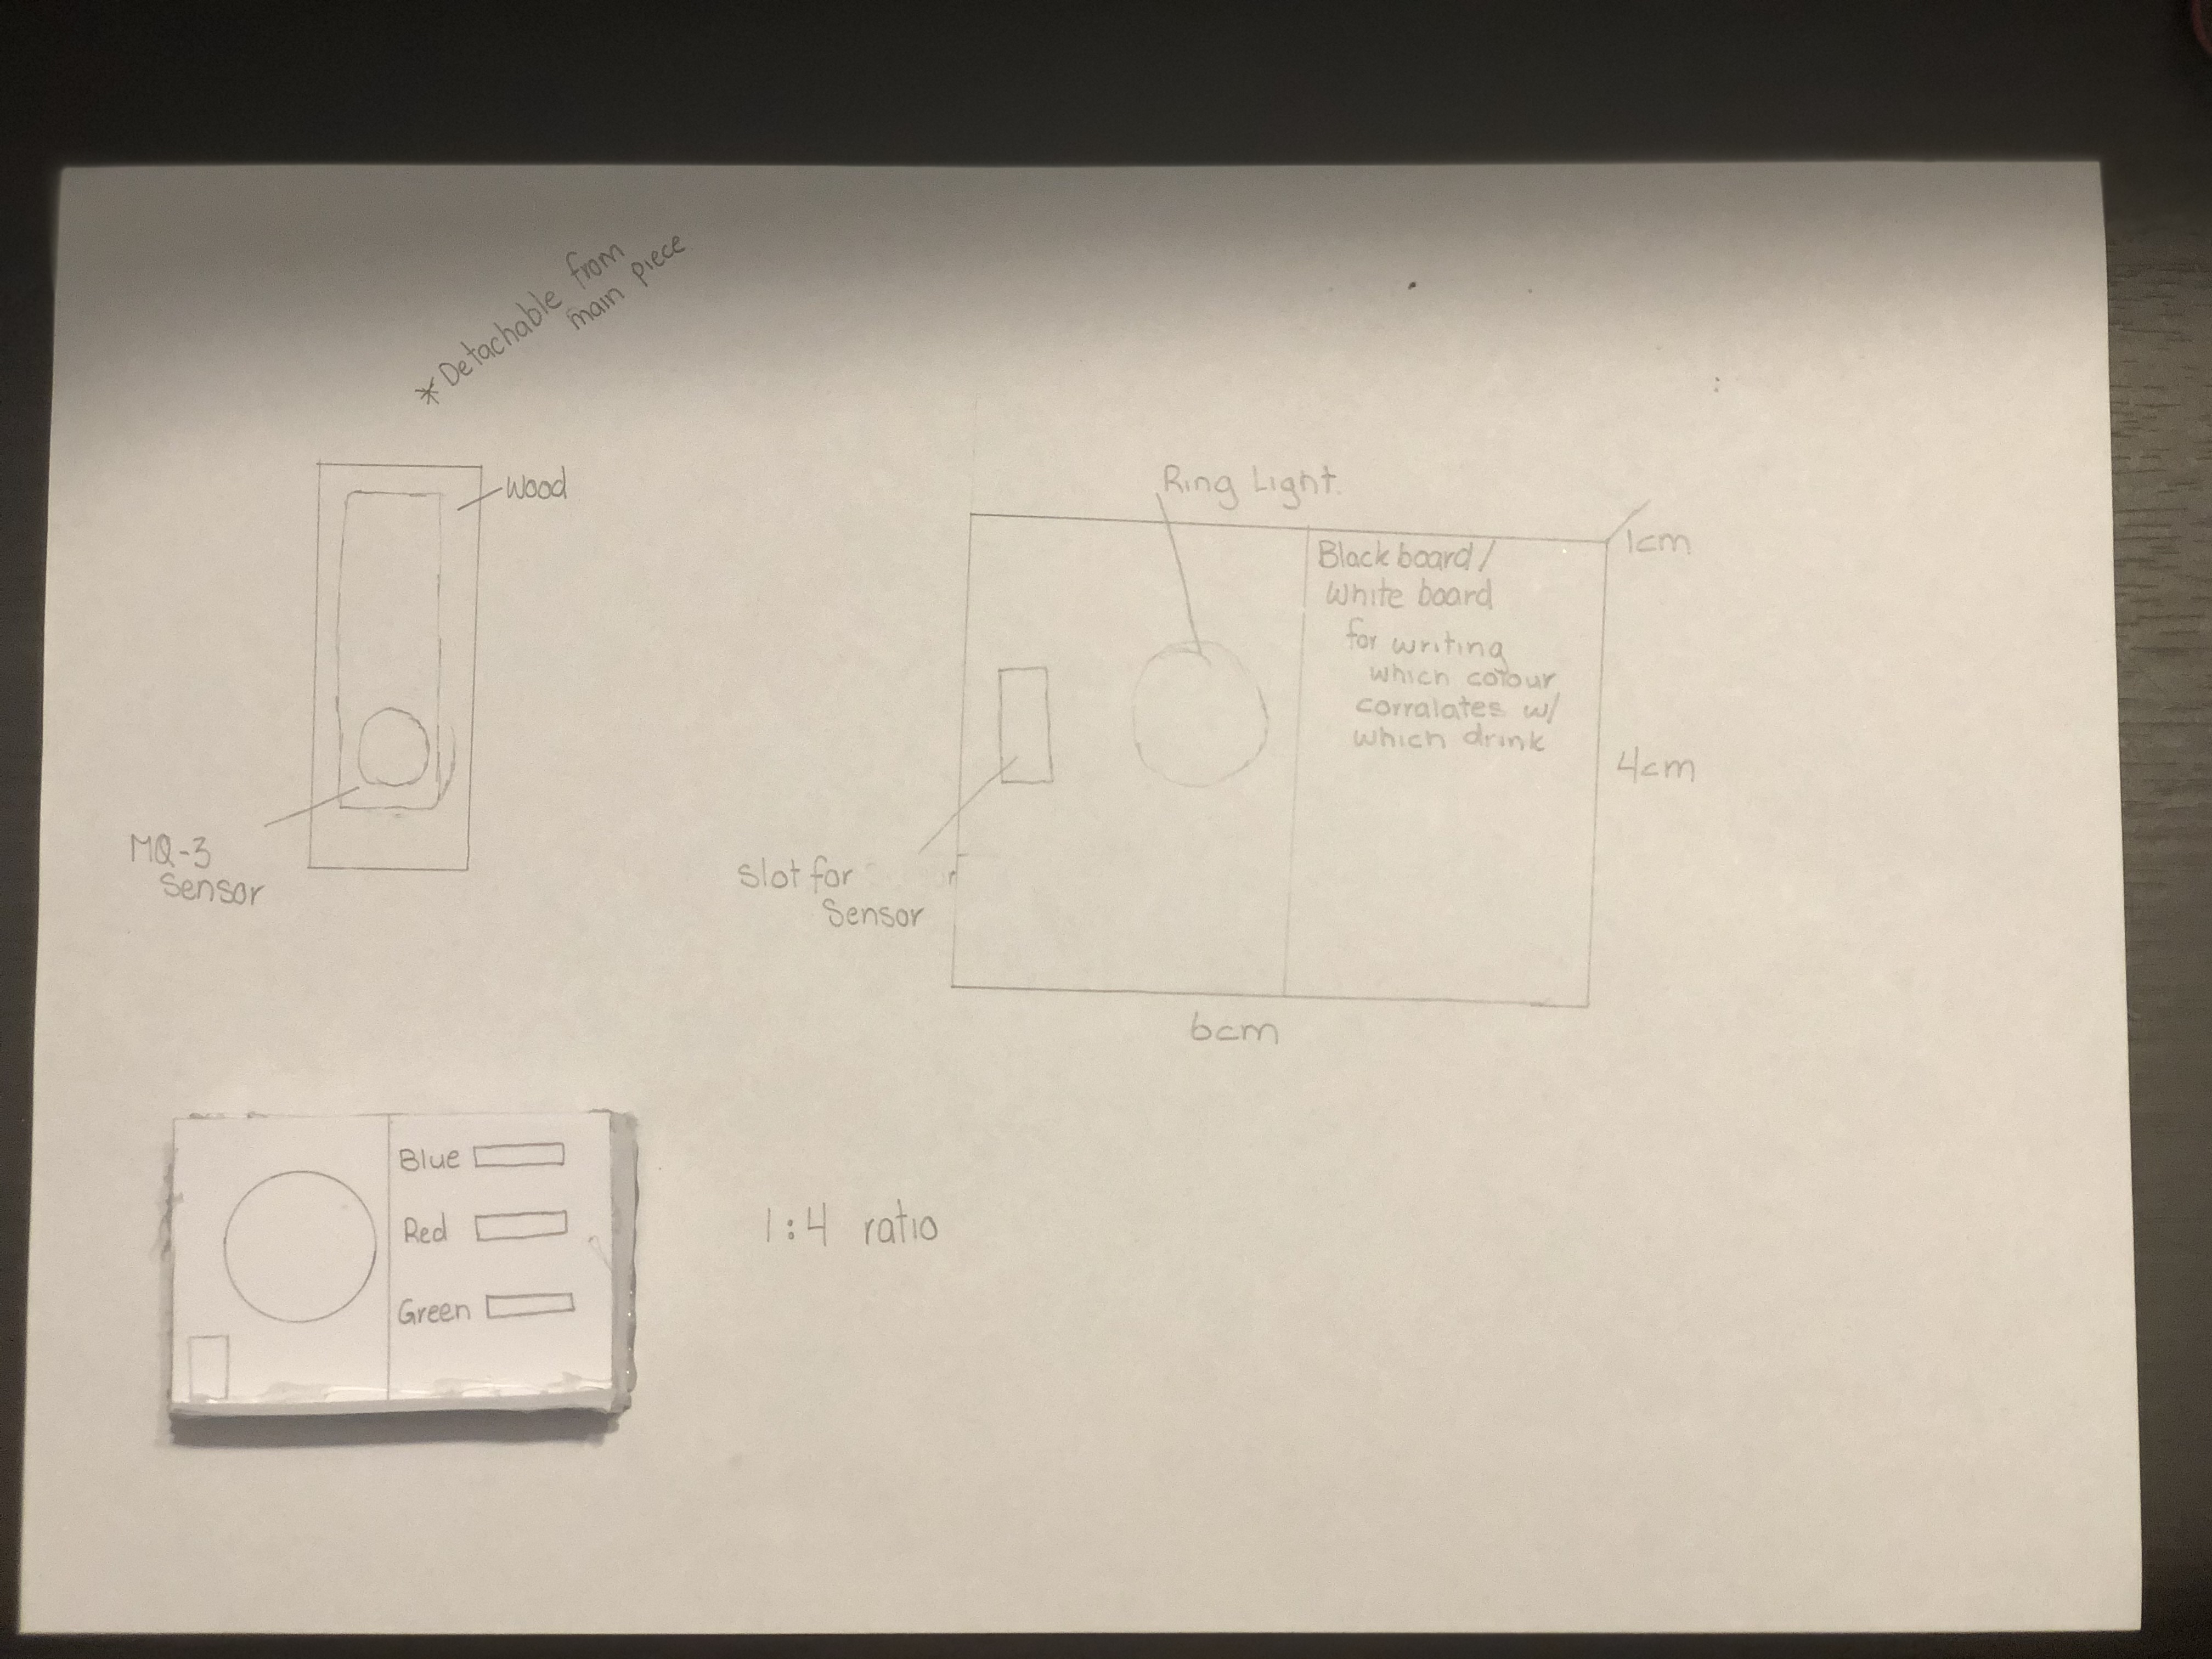 *Detachable from
main piece
Wood
MQ-3
Sensor
Ring Light.
1cm
Blackboard/
White board
for writing
which colour
corralates w/
which drink
4cm
Slot for
Sensor
6cm
Blue
Red
Green
1:4 ratio